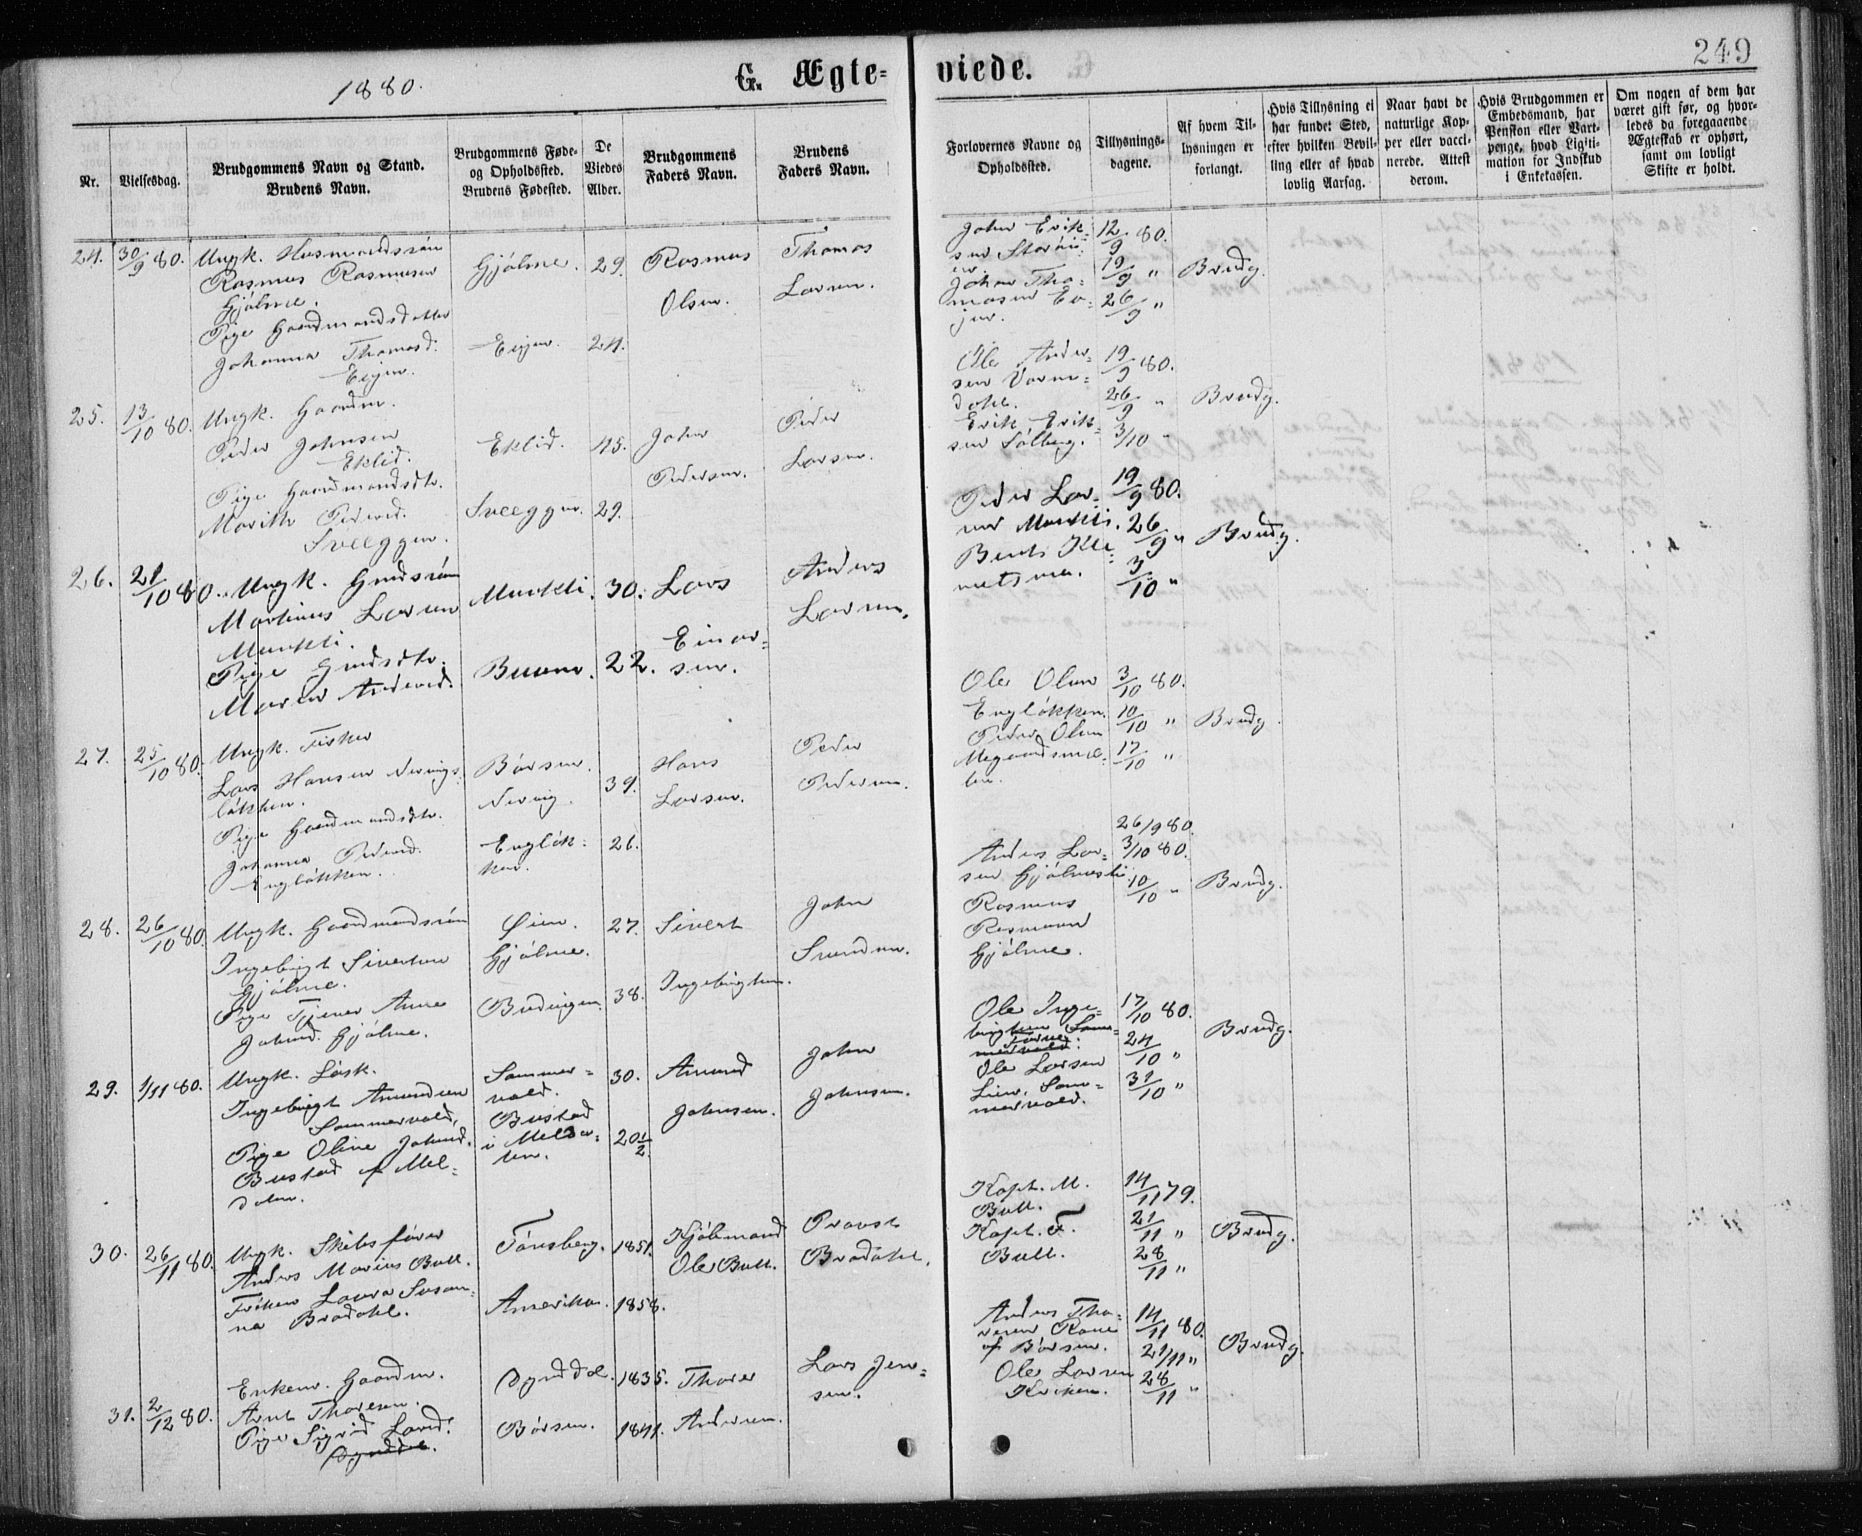 249
1880.
G. Ægte-
viede.
Nr.
Vielsesdag.
Brudgommens Navn og Stand.
Brudens Navn.
Brudgommens Føde-
og Opholdssted.
Brudens Fødested.
De
Viedes
Alder.
Brudgommens
Faders Navn.
Brudens
Faders Navn.
Forlovernes Navne og
Opholdssted.
Tillysnings-
dagene.
Af hvem Til-
lysningen er
forlangt.
Hvis Tillysning ei
har fundet Sted,
efter hvilken Bevil-
ling eller af hvad
lovlig Aarsag.
Naar havt de
naturlige Kop-
per eller vacci-
nerede. Attest
derom.
Hvis Brudgommen er
Embedsmand, har
Pension eller Vart-
penge, hvad Legiti-
mation for Indskud
i Enkekassen.
Om nogen af dem har
været gift før, og hvor-
ledes da foregaaende
Ægteskab er ophørt,
samt om lovligt
Skifte er holdt.
24. 30/9 80. Ungk. Husmandssøn
Rasmus Rasmusen
Gjølme.
Pige Gaardmandsdatter
Johanna Thomasd.
Gjølme. 29. Rasmus
Olsen.
Thomas
Larsen.
24.
John Erik-
sen
Johan Tho-
masen
12/9 80.
19/9 "
26/9 "
Brudg.
25. 13/10 80. Ungk. Gaardm.
Peder Johnsen
Eklid.
Pige Gaardmandsdtr.
Marith Pedersd.
Sveeggen.
Eklid. 45. John
Pedersen.
Peder
Larsen.
Sveeggen. 29.
Ole Ander-
sen Vorm-
dahl.
Erik Erik-
sen Solberg.
19/9 80.
26/9 "
3/10 "
Brudg.
26. 21/10 80. Ungk. Grdsøn
Martinus Larsen
Monkli.
Pige Grdsdtr.
Maren Andersd.
30. Lars
Einar-
sen.
Anders
Larsen.
22.
Peder Lar-
sen
Berit Kle-
metsen.
19/9 80.
26/9 "
3/10 "
Brudg.
27. 25/10 80. Ungk. Fisker
Lars Hansen
løkken.
Pige Gaardmandsdtr.
Johanna Pedersd.
Engløkken.
Børsen.
39. Hans
Larsen.
Peder
Pedersen.
Engløk-
ken. 26.
Ole Olsen
Engløkken.
Peder Olsen
3/10 80.
10/10 "
17/10 "
Brudg.
28. 26/10 80. Ungk. Gaardmandssøn
Ingebrigt Sivertsen
Gjølme.
Pige Tjener Anne
Johnsd. Gjølme.
Øien.
Gjølme.
27. Sivert
Ingebrigtsen.
John
38.
Anders Lar-
sen Gjølmesli.
Rasmus
Rasmusen
Gjølme.
26/9 80.
3/10 80.
10/10 "
Brudg.
29. 1/11 80. Ungk. Løsk.
Ingebrigt Amundsen
Sommervold,
Pige Oline Johnsd.
Bustad af Mel-
dalen.
Sommer-
vold.
Bustad
i Melda-
len.
30. Amund
Johnsen.
John
Johnsen.
20 1/2.
Ole Inge-
brigtsen
Ole Larsen
Lien, Som-
mervold.
17/10 80.
24/10 "
31/10 "
Brudg.
30. 26/11 80. Ungk. Skibsfører
Anders Marius Bull.
Frøken Laura Susan-
na Brodahl.
Tønsberg. 1851. Kjøbmand
Ole Bull.
Provst
Brodahl.
Amerika. 1858.
Kapt. M.
Bull.
Kapt. F.
Bull.
14/11 79.
21/11 "
28/11 "
Brudg.
31. 2/12 80. Enkem. Gaardm.
Arnt Thoresen.
Pige Sigrid Larsd.
1835. Thore
Andersen.
Lars Jen-
sen.
Børsen. 1841.
Anders Tho-
resen
af Børsen.
Ole Larsen
14/11 80.
21/11 "
28/11 "
Brudg.